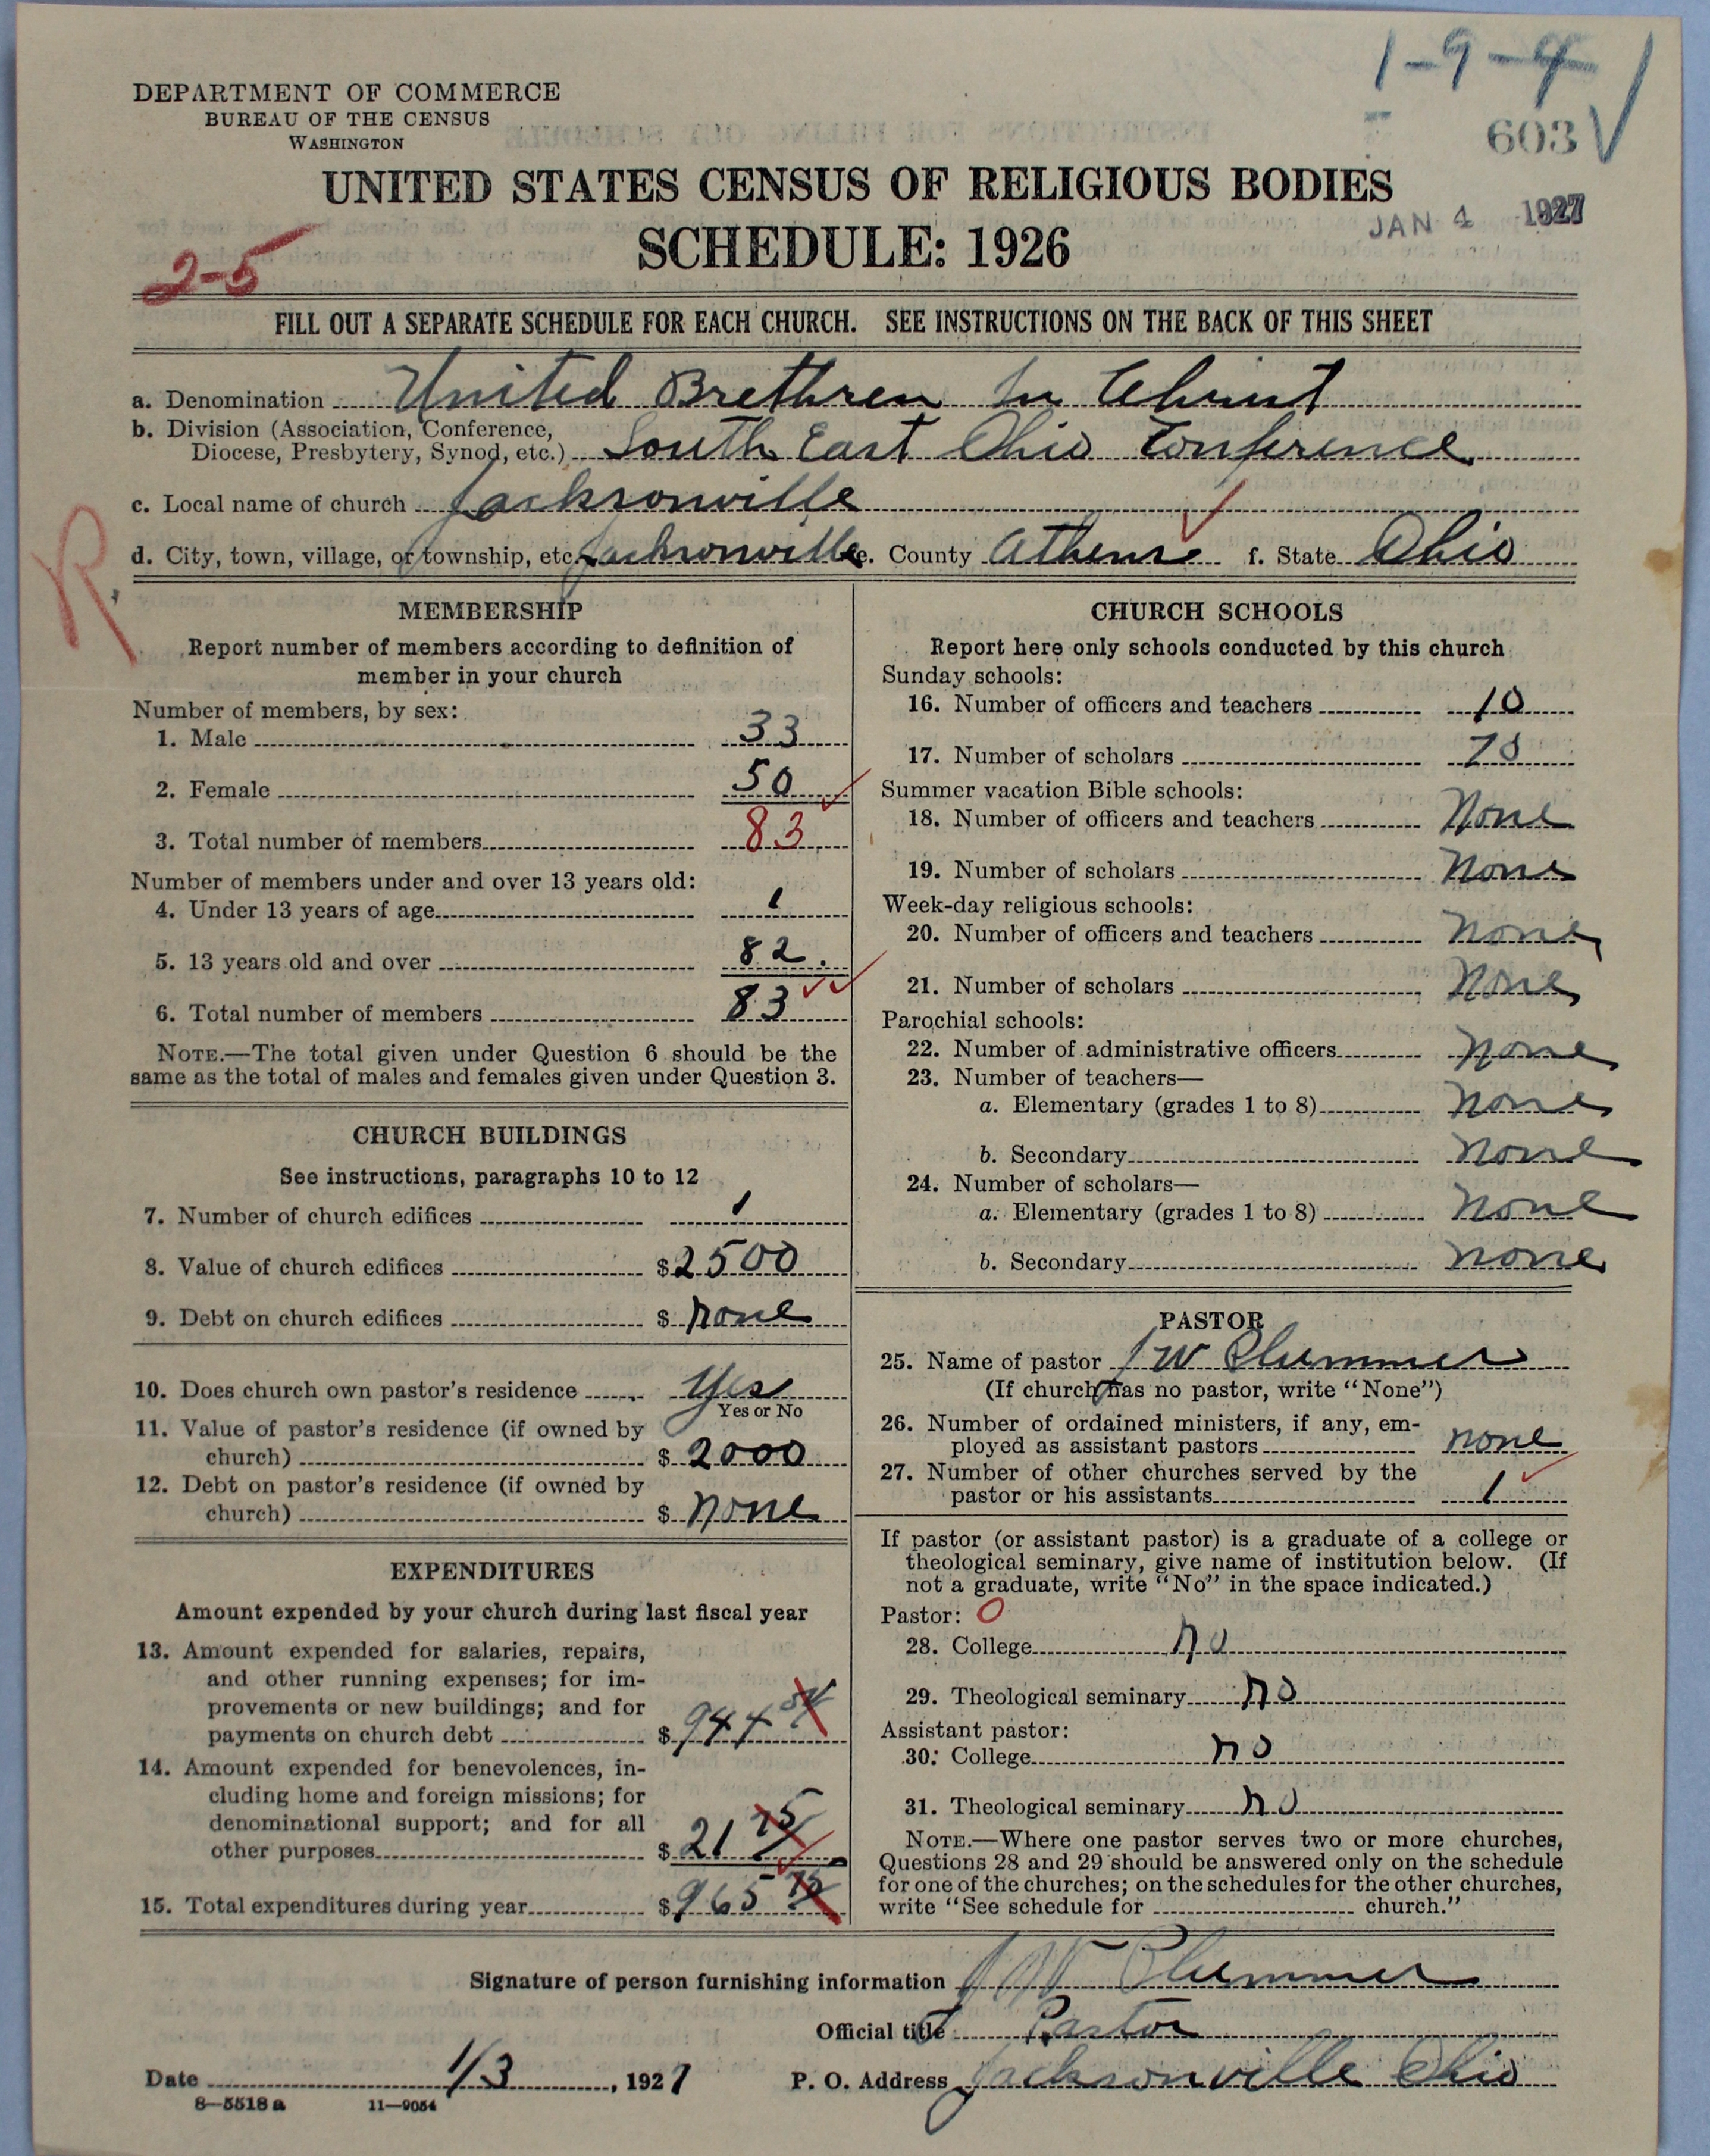 1-9-4
DEPARTMENT OF COMMERCE
BUREAU OF THE CENSUS
WASHINGTON
603
UNITED STATES CENSUS OF RELIGIOUS BODIES
JAN 4 1927
SCHEDULE: 1926
2-5
FILL OUT A SEPARATE SCHEDULE FOR EACH CHURCH. SEE INSTRUCTIONS ON THE BACK OF THIS SHEET
a. Denomination United Brethren In Christ
b. Division (Association, Conference,
Diocese, Presbytery, Synod, etc.) South East Ohio Conference
c. Local name of church Jacksonville
d. City, town, village, or township, etc. Jacksonville e. County Athens f. State Ohio
R
MEMBERSHIP
Report number of members according to definition of
member in your church
Number of members, by sex:
1. Male 33
2. Female 50
3. Total number of members 83
Number of members under and over 13 years old:
4. Under 13 years of age 1
5. 13 years old and over 82.
6. Total number of members 83
NOTE.—The total given under Question 6 should be the
same as the total of males and females given under Question 3.
CHURCH BUILDINGS
See instructions, paragraphs 10 to 12
7. Number of church edifices 1
8. Value of church edifices $2500
9. Debt on church edifices $ none
10. Does church own pastor's residence Yes
Yes or No
11. Value of pastor's residence (if owned by
church) $ 2000
12. Debt on pastor's residence (if owned by
church) $ none
EXPENDITURES
Amount expended by your church during last fiscal year
13. Amount expended for salaries, repairs,
and other running expenses; for im-
provements or new buildings; and for
payments on church debt $ 944
14. Amount expended for benevolences, in-
cluding home and foreign missions; for
denominational support; and for all
other purposes $ 21 75
15. Total expenditures during year $ 965
CHURCH SCHOOLS
Report here only schools conducted by this church
Sunday schools:
16. Number of officers and teachers 10
17. Number of scholars
Summer vacation Bible schools:
18. Number of officers and teachers None
19. Number of scholars None
Week-day religious schools:
20. Number of officers and teachers None
21. Number of scholars None
Parochial schools:
22. Number of administrative officers None
23. Number of teachers—
a. Elementary (grades 1 to 8) None
b. Secondary None
24. Number of scholars—
a. Elementary (grades 1 to 8) None
b. Secondary None
PASTOR
25. Name of pastor J W Plummer
(If church has no pastor, write "None")
26. Number of ordained ministers, if any, em-
ployed as assistant pastors none
27. Number of other churches served by the
pastor or his assistants 1
If pastor (or assistant pastor) is a graduate of a college or
theological seminary, give name of institution below. (If
not a graduate, write "No" in the space indicated.)
Pastor: 0
28. College no
29. Theological seminary no
Assistant pastor:
30. College no
31. Theological seminary no
NOTE.—Where one pastor serves two or more churches,
Questions 28 and 29 should be answered only on the schedule
for one of the churches; on the schedules for the other churches,
write "See schedule for church."
Signature of person furnishing information J W Plummer
Official title Pastor
Date 1/3, 1927 P. O. Address Jacksonville Ohio
8—5518 a 11—9054